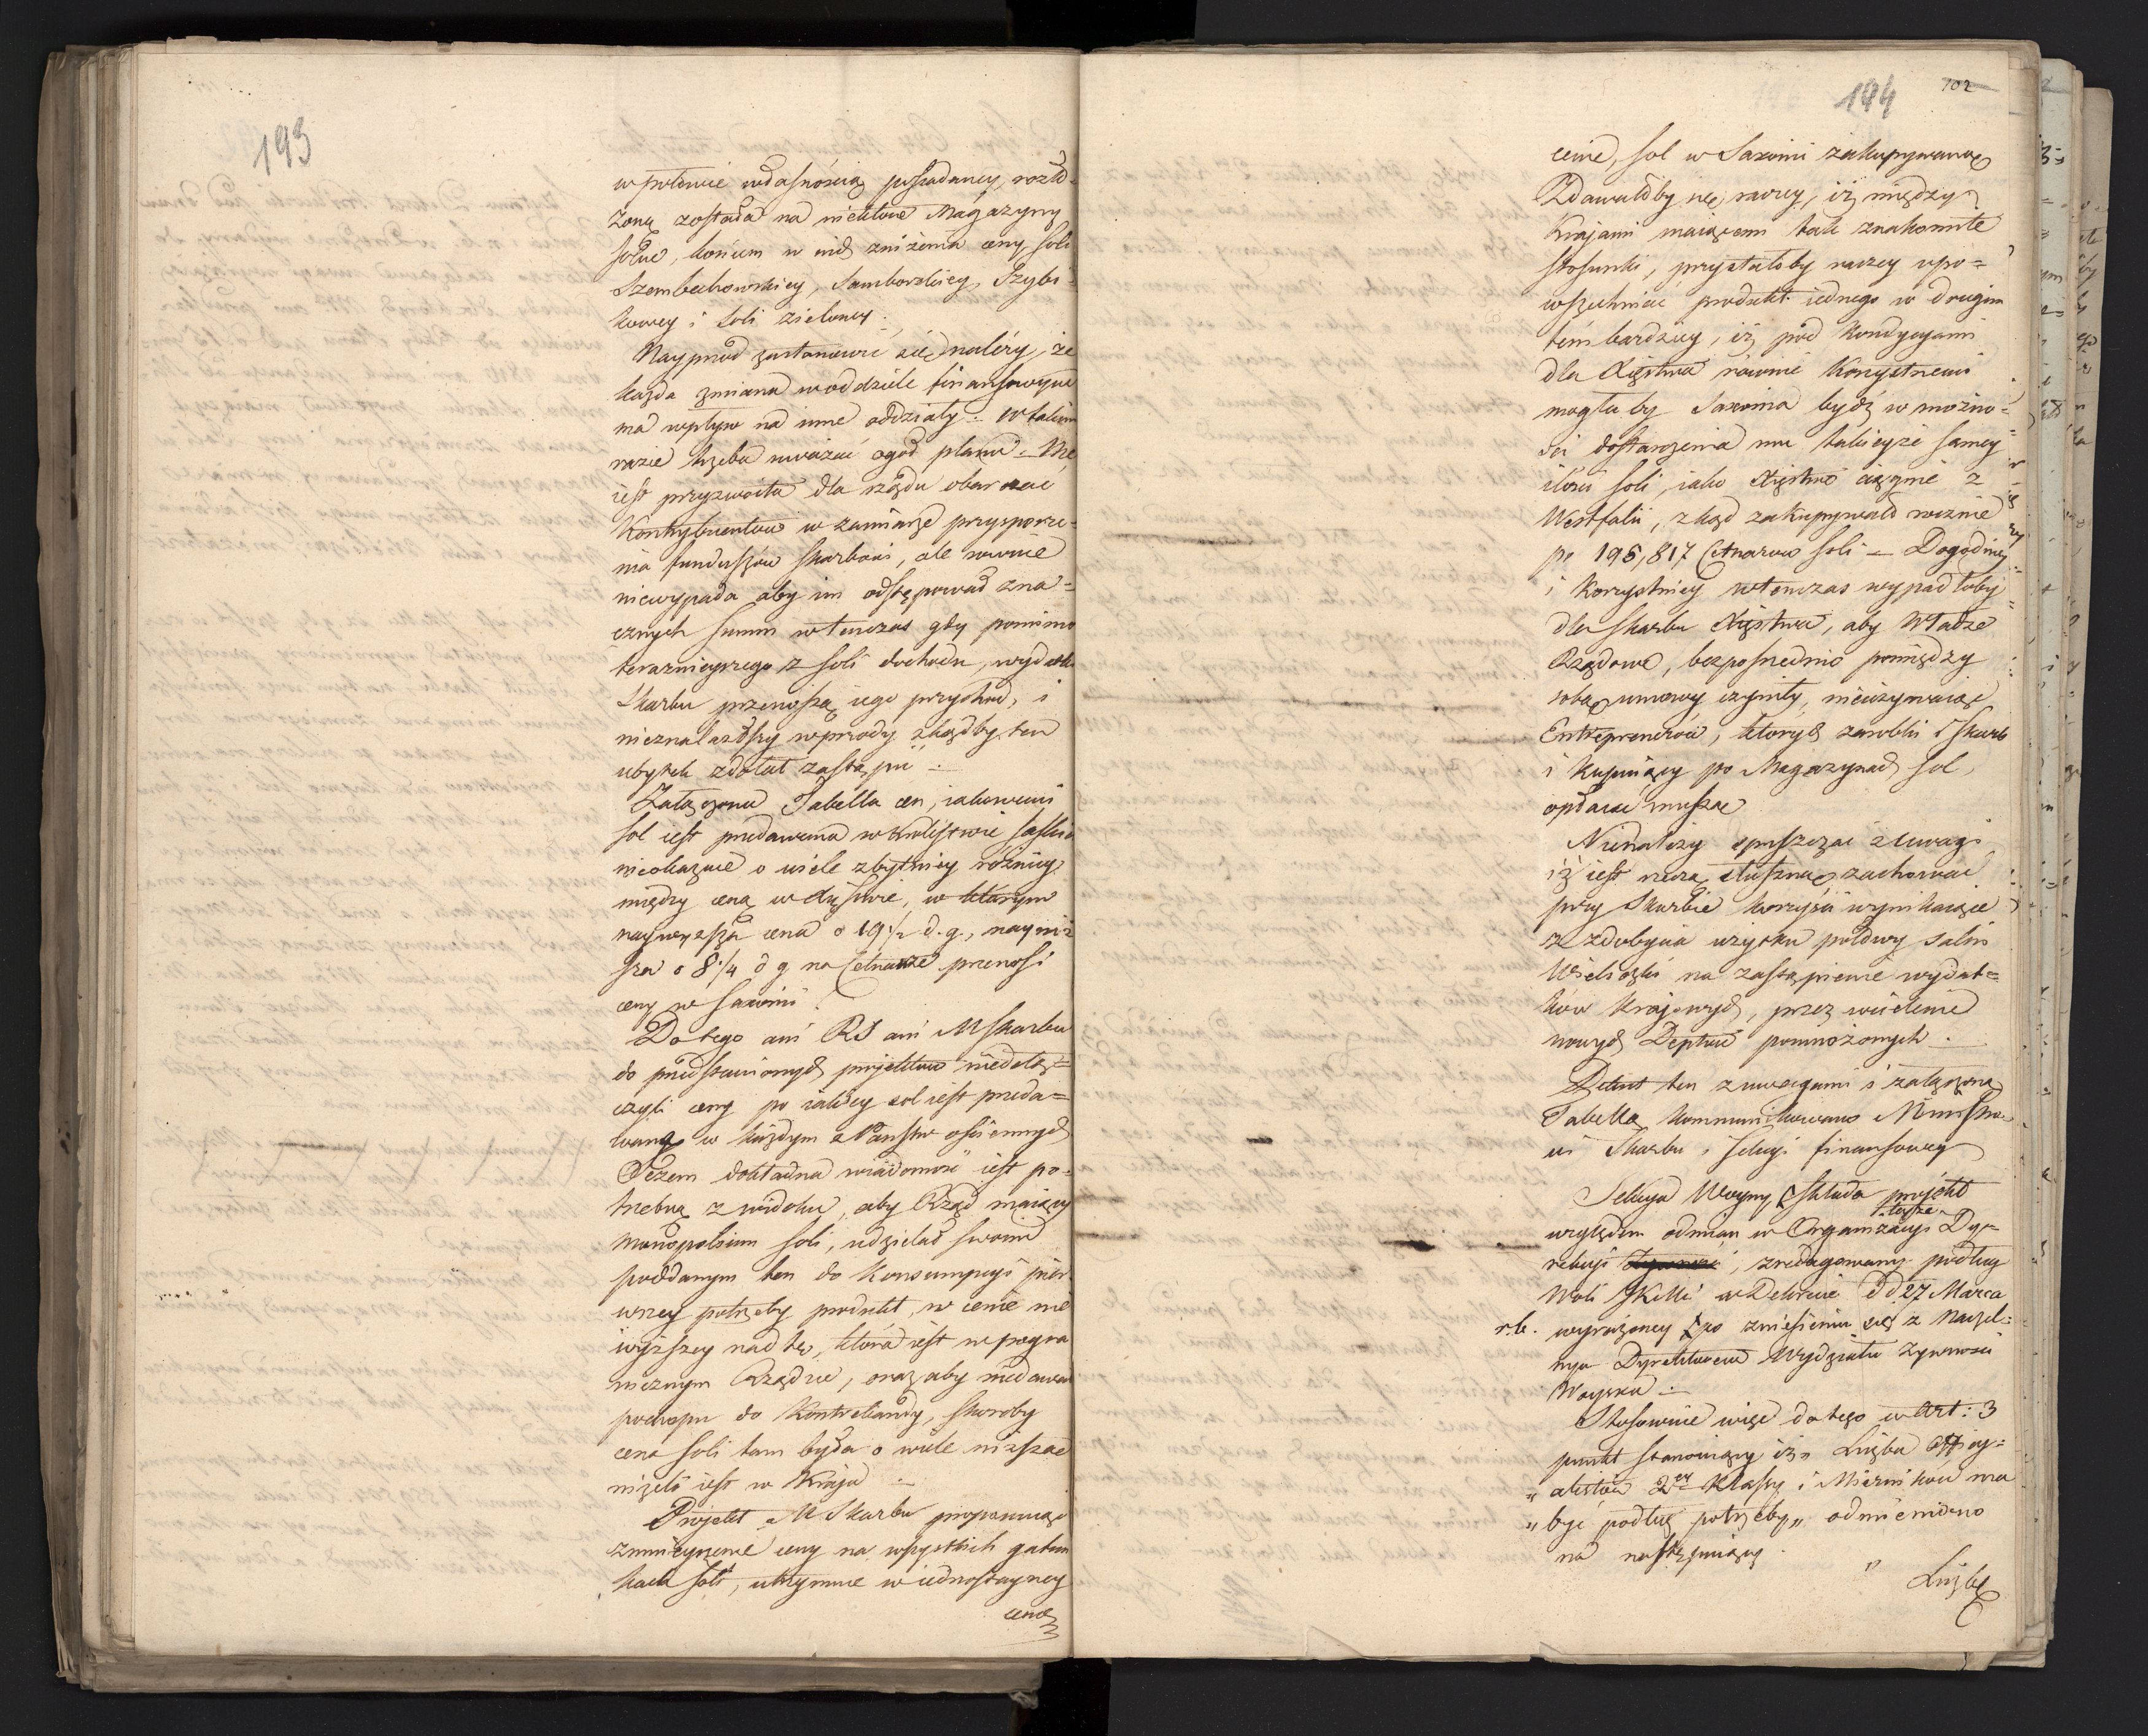 193
w połowie własnością posiadaney, rozło=
żoną została na niektóre Magazyny
solne, końcem w nich zniżenia ceny soli
Szembechowskiey, Samborskiey, Szybi=
kowey i soli zieloney.
Nayprzod zastanowić się należy, że
każda zmiana w oddziele finansowym
ma wpływ na inne oddziały. W takim
razie trzeba uważać ogół planu. Nie
iest przyzwoita dla rządu obarczac
Kontrybuentow w zamiarze przysporze=
nia funduszów Skarbowi, ale rownie
niewypada aby im odstępował zna=
cznych summ wtenczas gdy pomimo
teraznieyszego z soli dochodu, wydatki
Skarbu przenoszą iego przychod, i
nieznalazłszy wprzody zkądby ten
ubytek zdołał zastąpić.
Załączona Tabella cen, iakowemi
sol iest przedawana w Królestwie Saskim
nieokazuie o wiele zbytniey różnicy
między ceną w Xięstwie, w którym
naywyższa cena o 19 1/2 d. g., nayniż
sza o 8 1/4 d g na Cetnarze przenosi
ceny w Saxonii.
Do tego ani RS ani MSkarbu
do przedstawionych projektow niedołą=
czyli ceny po iakiey sol iest przeda=
waną w każdym z Państw ościennych
O czem dokładna wiadomość iest po=
trzebną z widoku, aby Rząd maiący
monopolium soli, udzielał swoim
poddanym ten do Konsumpcyi pier
wszey potrzeby produkt w cenie nie
wyższey nad tę, która iest w pogra
nicznym Rządzie, oraz aby niedawał
pochopu do Kontrabandy, skoroby
cena soli tam była o wiele niższa
niżeli iest w Kraju.
Projekt MSkarbu proponuiąc
zmnieyszenie ceny na wszystkich gatun
kach soli, utrzymuie w iednostayney
cenę
194
102
cenie, sol w Saxonii zakupywaną
Zdawałoby się raczey, iż między
Krajami maiącemi tak znakomite
stosunki, przystałoby raczey upo=
wszechniać produkt iednego w drugim
tem bardziey, iż pod Kondycyami
dla Xięstwa równie korzystnemi
mogła by Saxonia bydź w możno=
ści dostarczenia mu takieyże samey
ilości soli, iako Xięstwo ciągnie z
Westfalii, zkąd zakupywało rocznie
po 195,817 Cetnarow soli — Dogodniey
i korzystniey wtenczas wypadłoby
dla Skarbu Xięstwa, aby Władze
Rządowe, bezposrednio pomiędzy
sobą umowy czyniły, nieużywaiąc
Entreprenerów, których zarobki i Skarb
i kupuiący po Magazynach sol,
opłacać muszą
Nienależy opuszczać z uwagi
iż iest rzeczą słuszną zachować
przy Skarbie korzyści wynikaiące
z zdobycia uzysku połowy salin
Wieliczki na zastąpienie wydat=
ków krajowych, przez wcielenie
nowych Depttów pomnożonych.
Dekret ten z uwagami i załączoną
Tabellą kommunikowano Ministro
wi Skarbu i Sekcyi finansowey
Sekcya Woyny, Składa projekt
względem odmian w Organizacyi teyże Dy=
rekcyi , zredagowany podług
Woli JKMci w Dekrecie d d 27 Marca
r.b. wyrażoney po zniesieniu się z Naczel=
nym Dyrektorem Wydziału Żywności
Woyska.
Stosownie więc do tego w Art: 3
punkt stanowiący iż „ Liczba Officy=
„ alistów 2ey Klassy i Mierników ma
„ być podług potrzeby „ odmieniono
na następuiący.
„ Liczbę